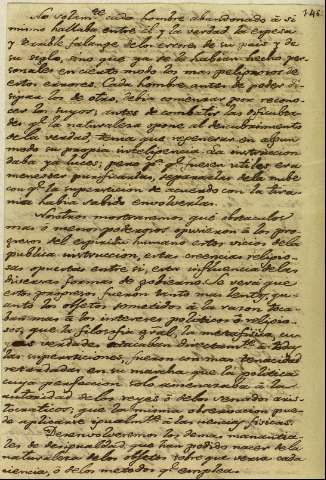 146
No solam.te cada hombre abandonado à si
mismo hallaba entre él y la verdad la espesa
y terrible falange de los errores de su pais y de
su siglo, sino que ya se le habian hecho per-
sonales en cierto modo los mas peligrosos de
estos errores. Cada hombre antes de poder di-
sipar los de otro, debia comenzar por recono-
cer los suyos, antes de combatir las dificulta-
des q.e la naturaleza opone al descubrimiento
de la verdad, tenia que regenerar en algun
modo su propia inteligencia. La instruccion
daba ya luces; pero p.a q.e fuesen utiles era
menester purificarlas, separarlas de la nube
con q.e la supersticion de acuerdo con la tira-
nia habia sabido envolverlas.
Nosotros mostraremos qué obstaculos
mas ó menos poderosos opusieron à los pro-
gresos del espiritu humano estos vicios de la
publica instruccion, estas creencias religio-
sas opuestas entre si, esta influencia de las
diversas formas de gobierno. Se verá que
estos progresos fueron tanto mas lentos, qu-
anto los objetos sometidos à la razon toca-
ban mas à los intereses politicos ó religio-
sos; que la filosofia g.ral, la metafisica, cu-
yas verdades atacaban directam.te à todas
las supersticiones, fueron con mas tenacidad
retardadas en su marcha que la politica
cuya perfeccion solo amenazaba à la
autoridad de los reyes ó de los senados aris-
tocraticos; que la misma observacion pue-
de aplicarse igualm.te à las ciencias fisicas.
Desenvolveremos los demas manantia-
les de desigualdad, que han podido nacer de la
naturaleza de los objetos sobre que versa cada
ciencia, ó de los metodos q.e emplea.